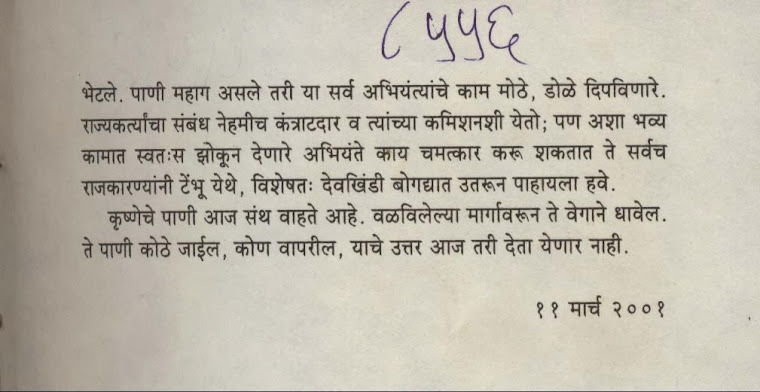 ८५५६
भेटले. पाणी महाग असले तरी या सर्व अभियंत्यांचे काम मोठे, डोळे दिपविणारे.
राज्यकर्त्यांचा संबंध नेहमीच कंत्राटदार व त्यांच्या कमिशनशी येतो; पण अशा भव्य
कामात स्वतःस झोकून देणारे अभियंते काय चमत्कार करू शकतात ते सर्वच
राजकारण्यांनी टेंभू येथे, विशेषतः देवखिंडी बोगद्यात उतरून पाहायला हवे.
कृष्णेचे पाणी आज संथ वाहते आहे. वळविलेल्या मार्गावरून ते वेगाने धावेल.
ते पाणी कोठे जाईल, कोण वापरील, याचे उत्तर आज तरी देता येणार नाही.
११ मार्च २००१